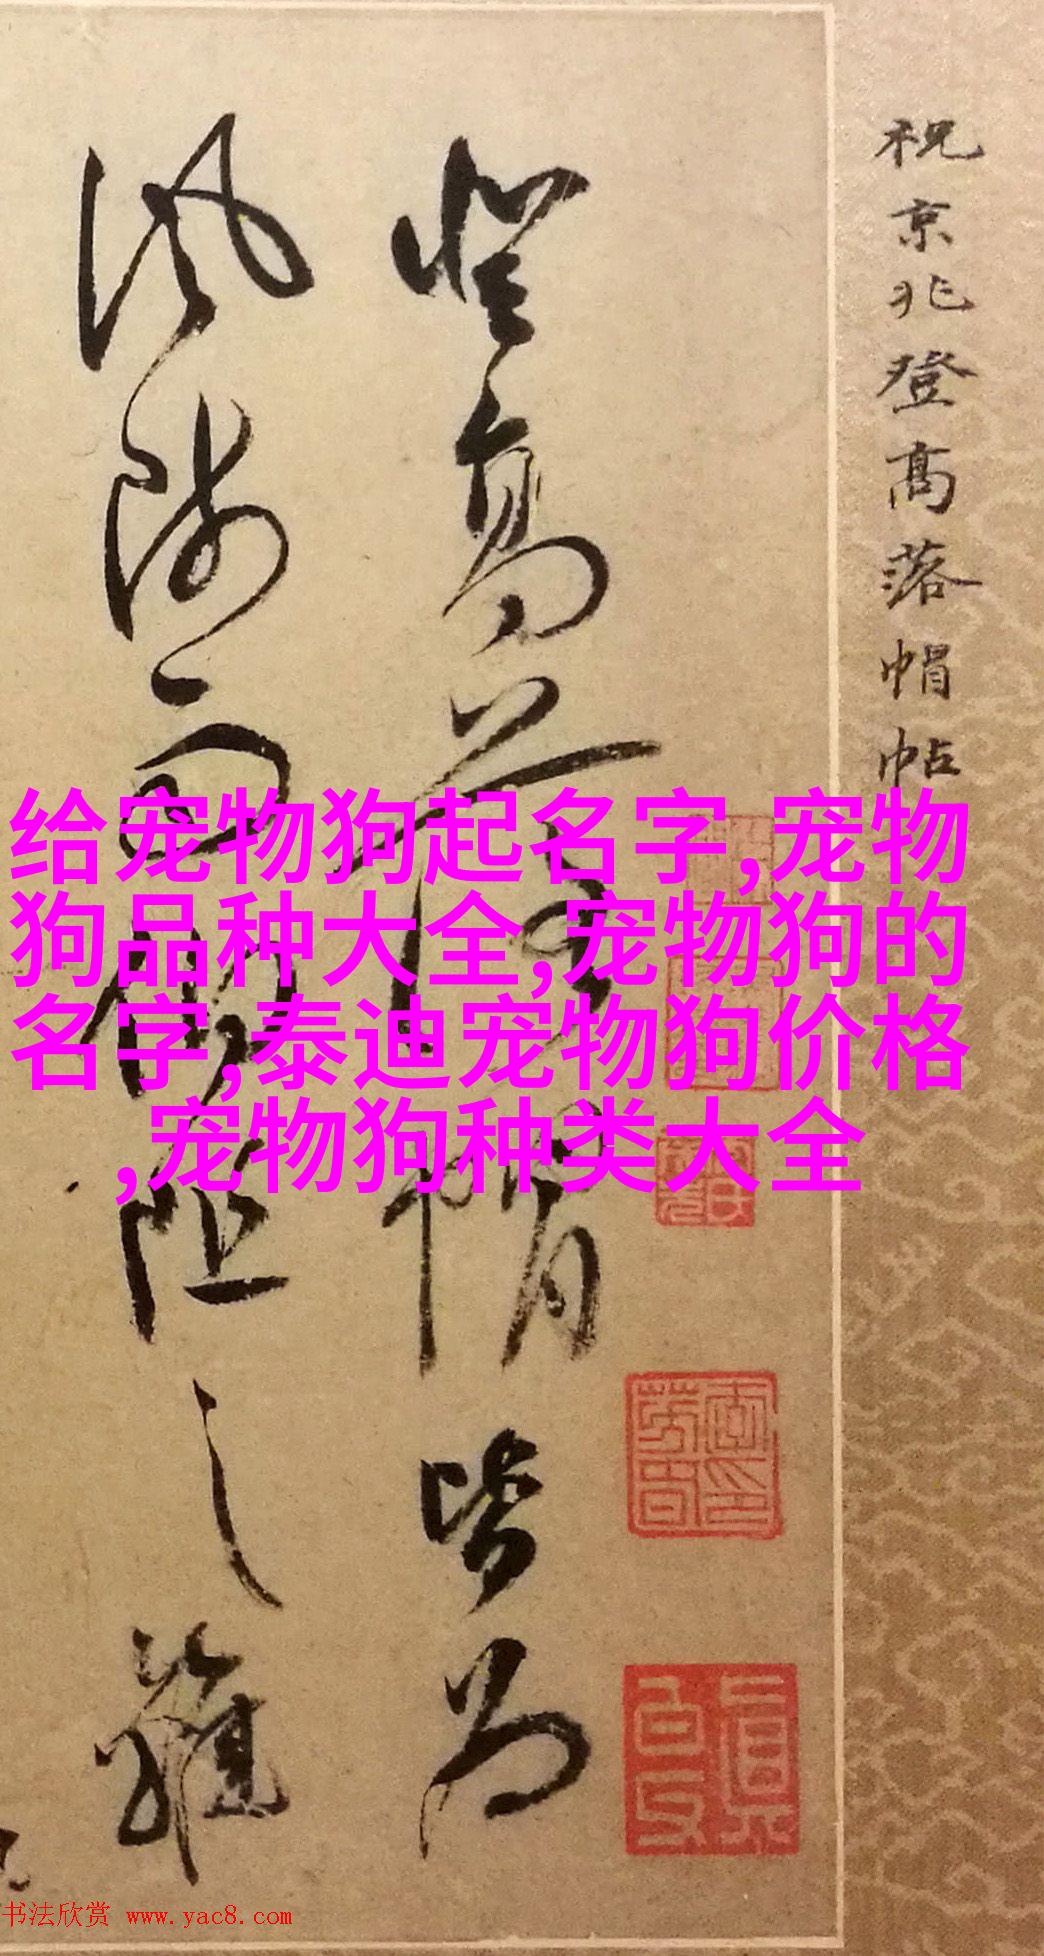 祝京兆登高落帽帖
登高 皆為
風師雨伯阻之雖
给宠物狗起名字,宠物
狗品种大全,宠物狗的
名字,泰迪宠物狗价格
,宠物狗种类大全
书法欣赏 www.yac8.com